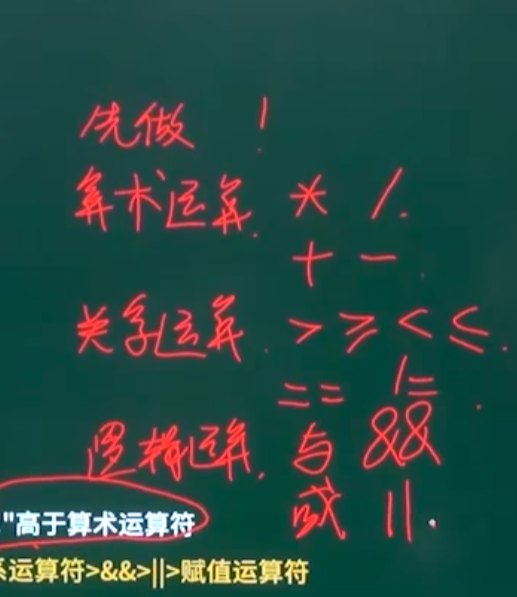 先做 !
算术运算. * /.
+ - .
关系运算. > ≥ < ≤.
== != .
逻辑运算. 与 &&
"高于算术运算符
或 ||.
系运算符>&&>||>赋值运算符